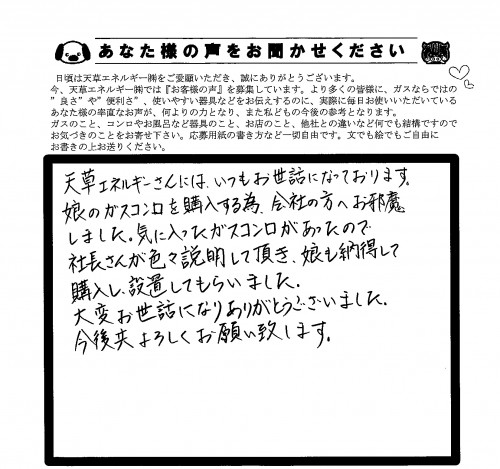 あなた様の声をお聞かせください
日頃は天草エネルギー㈱をご愛顧いただき、誠にありがとうございます。
今、天草エネルギー㈱では『お客様の声』を募集しています。より多くの皆様に、ガスならではの
"良さ"や"便利さ"、使いやすい器具などをお伝えするのに、実際に毎日お使いいただいている
あなた様の率直なお声が、何よりの力となり、また私どもの今後の参考となります。
ガスのこと、コンロやお風呂など器具のこと、お店のこと、他社との違いなど何でも結構ですので
お気づきのことをお寄せ下さい。応募用紙の書き方など一切自由です。文でも絵でもご自由に
お書きの上お送りください。
天草エネルギーさんには、いつもお世話になっております。
娘のガスコンロを購入する為、会社の方へお邪魔
しました。気に入ったガスコンロがあったので
社長さんが色々説明して頂き、娘も納得して
購入し、設置してもらいました。
大変お世話になりありがとうございました。
今後共よろしくお願い致します。